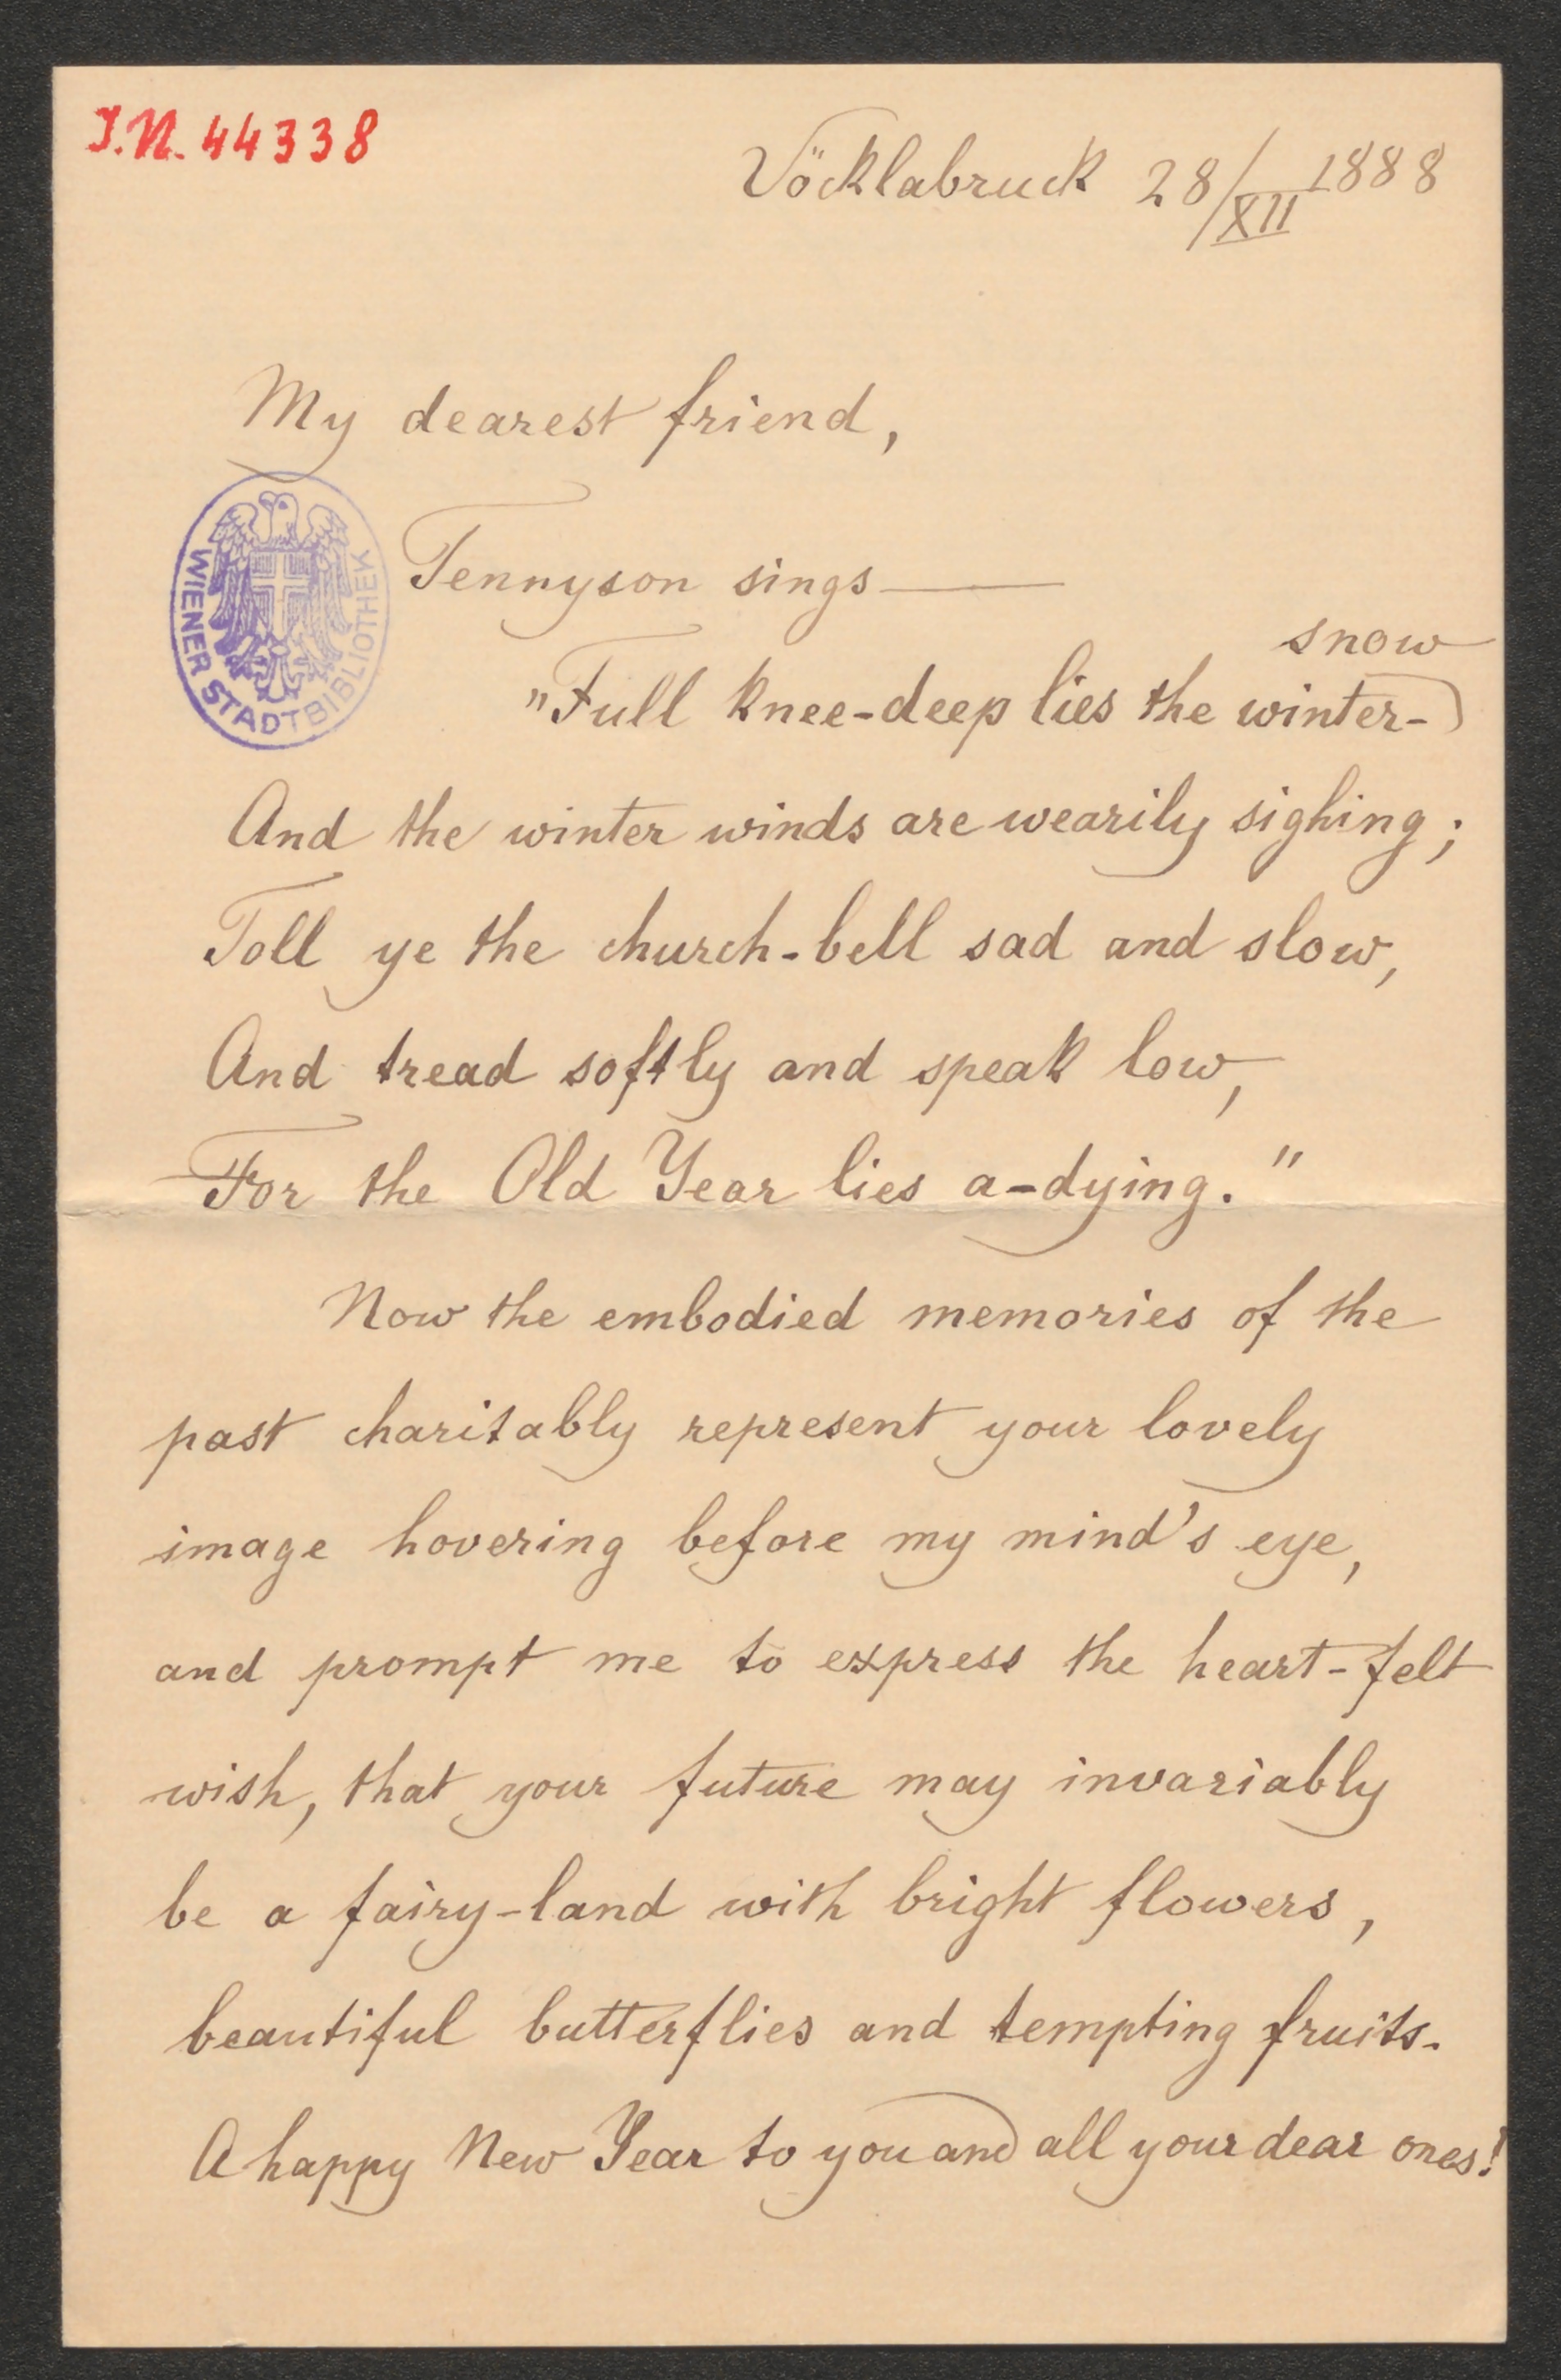 J.N. 44338
Vöcklabruck 28/XII 1888
My dearest friend,
WIENER STADTBIBLIOTHEK
Tennyson sings —
"Full knee-deep lies the winter-snow
And the winter winds are wearily sighing;
Toll ye the church-bell sad and slow,
And tread softly and speak low,
For the Old Year lies a-dying."
Now the embodied memories of the
past charitably represent your lovely
image hovering before my mind's eye,
and prompt me to express the heart-felt
wish, that your future may invariably
be a fairy-land with bright flowers,
beautiful butterflies and tempting fruits.
A happy New Year to you and all your dear ones!